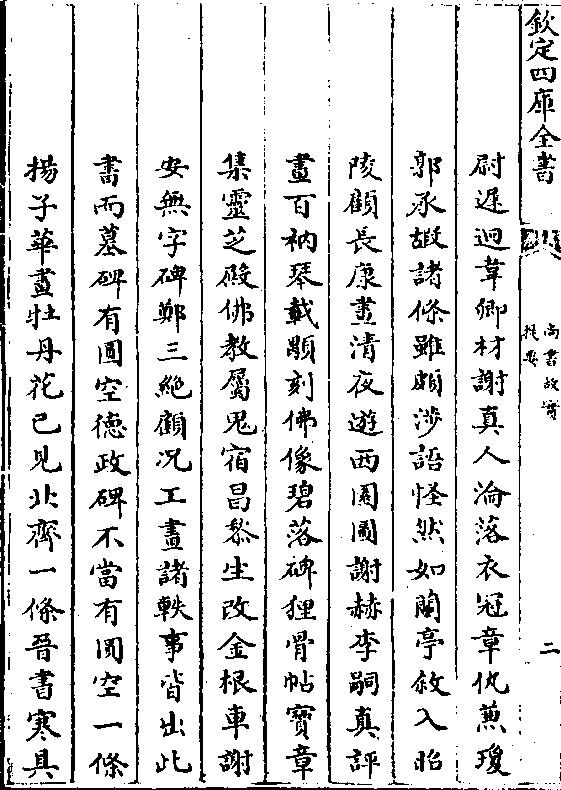 欽定四庫全書
尚書故實
提要
二
尉遲迥韋卿材謝真人淪落衣冠章仇兼瓊
郭承嘏諸條雖頗涉語怪然如蘭亭敘入昭
陵顧長康畫清夜遊西園圖謝赫李嗣真評
畫百衲琴戴顒刻佛像碧落碑狸骨帖寶章
集靈芝殿佛教屬鬼宿昌黎生改金根車謝
安無字碑鄭三絶顧况工畫諸軼事皆出此
書而墓碑有圓空德政碑不當有圓空一條
楊子華畫牡丹花已見北齊一條晉書寒具